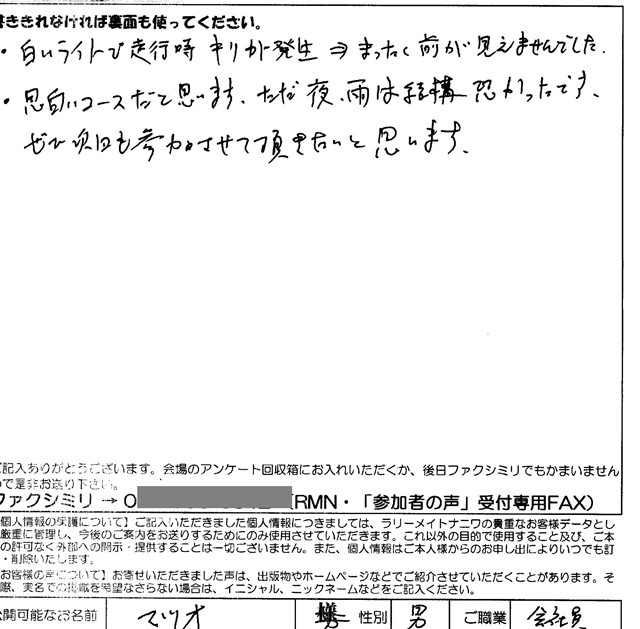 書ききれなければ裏面も使ってください。
・白いライトで走行時 キリが発生 ⇒ まったく前が見えませんでした.
・思白いコースだと思います、ただ夜、雨は結構恐かったです、
ぜひ次回も参加させて頂きたいと思います.
ご記入ありがとうございます。会場のアンケート回収箱にお入れいただくか、後日ファクシミリでもかまいません
ので是非お送り下さい。
ファクシミリ → 0 (RMN・「参加者の声」受付専用FAX)
個人情報の保護について】ご記入いただきました個人情報につきましては、ラリーメイトナニワの貴重なお客様データとし
厳重に管理し、今後のご案内をお送りするためにのみ使用させていただきます。これ以外の目的で使用すること及び、ご本
の許可なく外部への開示・提供することは一切ございません。また、個人情報はご本人様からのお申し出によりいつでも訂
・削除いたします。
お客様の声について】お寄せいただきました声は、出版物やホームページなどでご紹介させていただくことがあります。そ
際、実名での掲載を希望なさらない場合は、イニシャル、ニックネームなどをご記入ください。
公開可能なお名前 マツオ 様 性別 男 ご職業 会社員